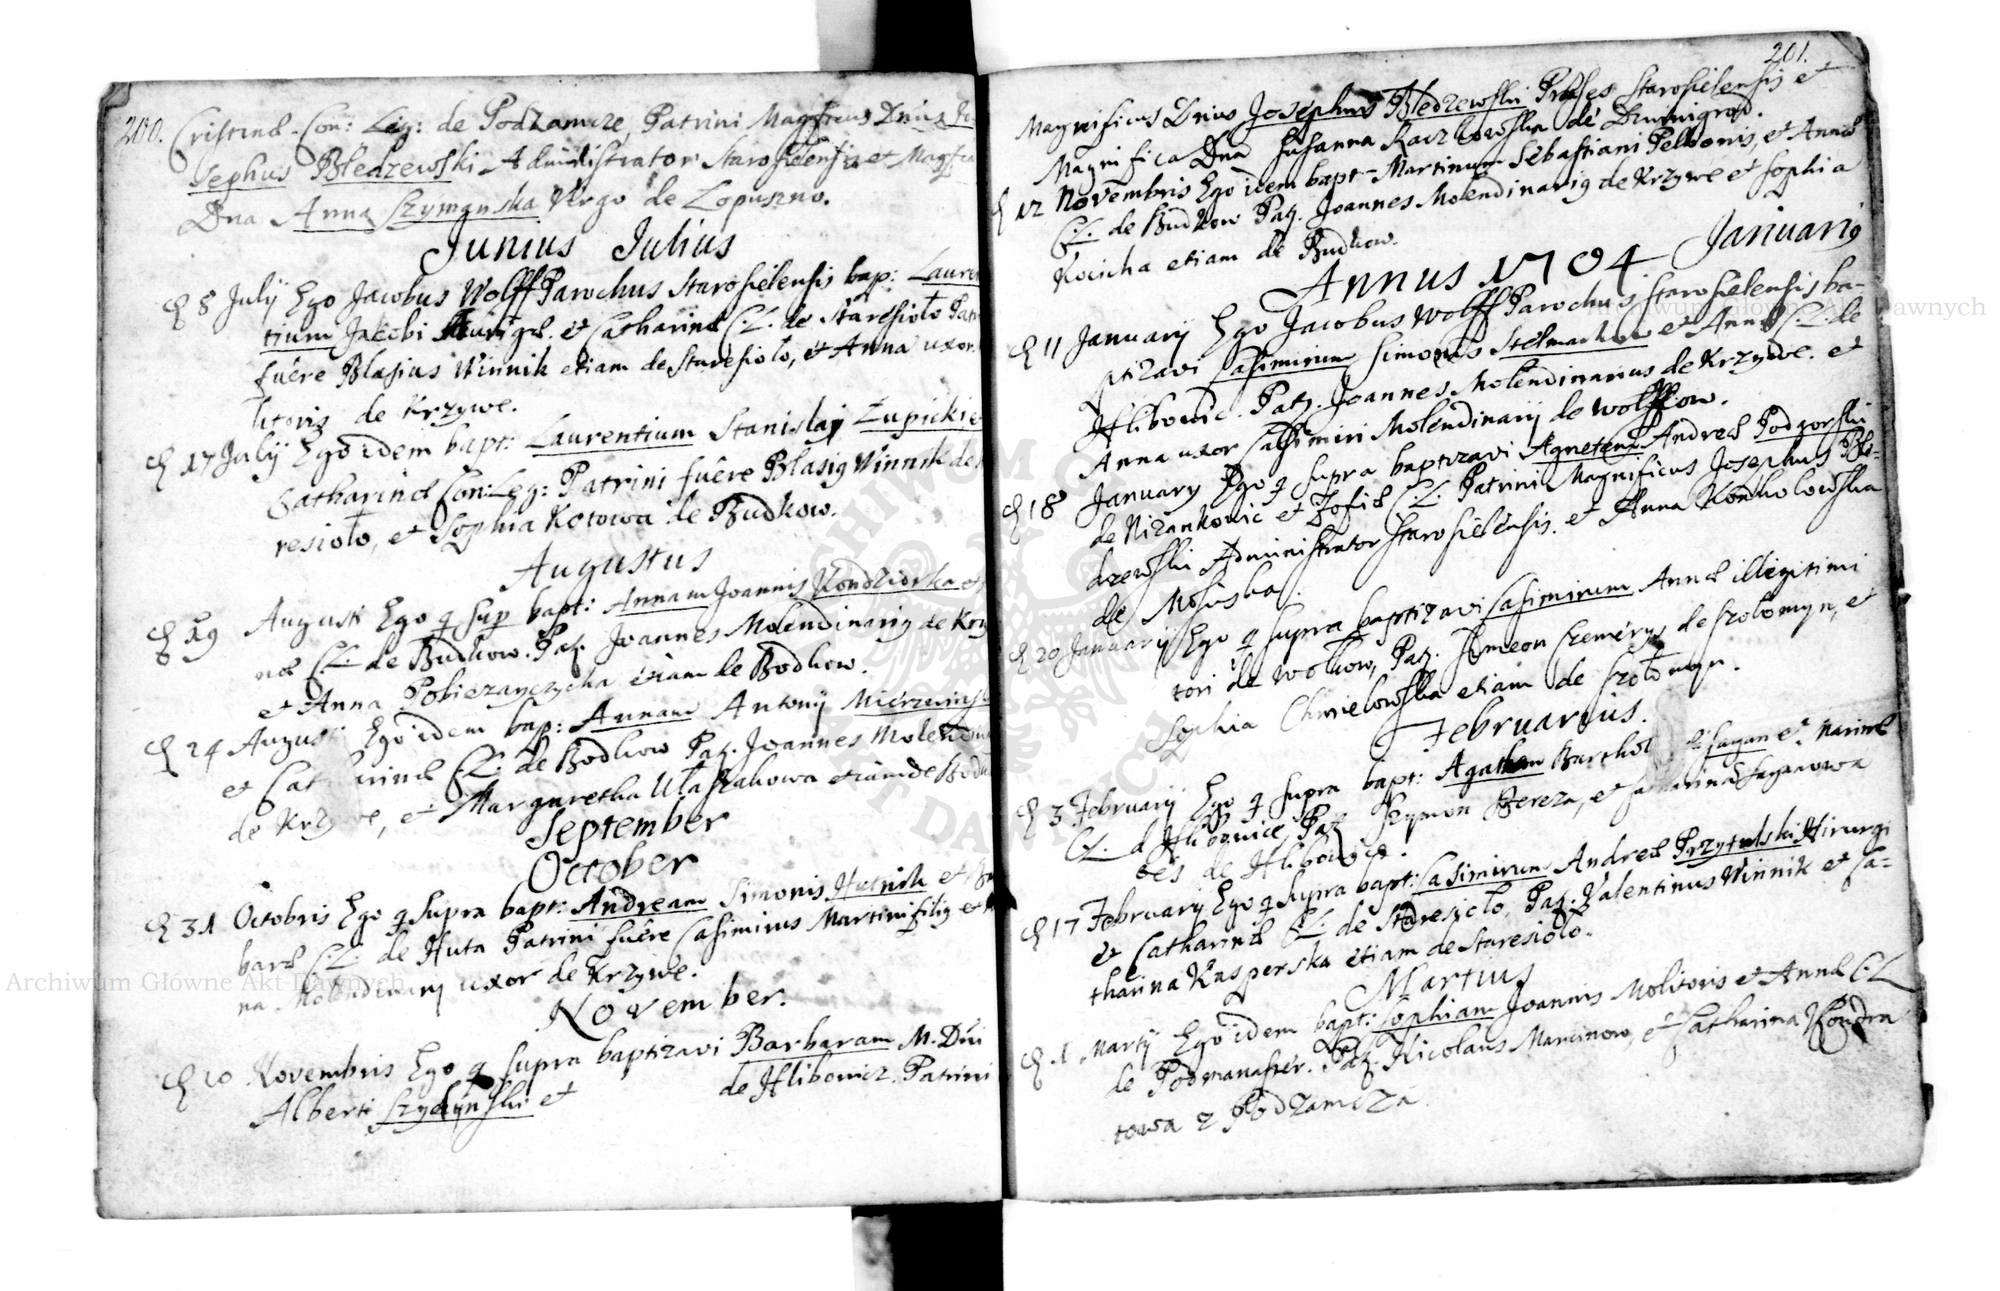 200.
Cristinæ Con: Leg: de Podzamcze, Patrini Magnificus Dnus Jo
sephus Bledzewski Administrator Starosielensis et Magfca
Dna Anna Szymanska Virgo de Lopuszno.
Junius Julius
8 July Ego Jacobus Wolff Parochus Starosielensis bap: Lauren
tium Jacobi et Catharinæ C.L. de Staresioło Patri
fuêre Blasius Winnik etiam de Staresioło, et Anna uxor
litoris de Krzywe.
17 July Ego idem bapt: Laurentium Stanislaj Łupickie
Catharinæ Con: Leg: Patrini fuêre Blasig Winnik de
resioło, et Sophia Kotowa de Budkow.
Augustus
19 Augusti Ego q sup bapt: Annam Joannis Kondziorka et
næ C.L. de Budkow. Pat. Joannes Molendinarig de Krzy
et Anna Pobiezanczycha etiam de Bodkow.
24 Augusti Ego idem bap: Annam Antonij Mierzwinski
et Catharinæ C.L. de Bodkow Pat. Joannes Molendin
de Krzywe, et Margaretha Ułaszakowa etiam de Bodk
September
October
31 Octobris Ego q supra bapt: Andream Simonis Hutnik et Bar
baræ C.L. de Huta Patrini fuêre Casimirus Martini filig et
na Molendinarij uxor de Krzywe.
November.
10 Novembris Ego q supra baptizavi Barbaram M. Dni
Alberti Szydzynski et de Hlibowicz. Patrini
201.
Magnificus Dnus Josephus Bledzewski Præses Starosielensis et
Magnifica Dna Susanna Raczkowska de Dunnigrod.
12 Novembris Ego idem bapt- Martinum Sebastiani Pellonis, et Annæ
C.L. de Budkow Pat. Joannes Molendinarig de Krzywe et Sophia
Kocicha etiam de Budkow.
Annus 1704 Januarig
11 January Ego Jacobus Wolff Parochus Starosielensis ba-
ptizavi Casimirum Simonis Stelmachow et Annæ C.L. de
Hlibowic. Pat. Joannes Molendinarius de Krzywe. et
Anna uxor Casimiri Molendinarij de Wolkow.
18 January Ego q supra baptizavi Agnetem Andreæ Podgorski
de Nizankowic et Zofiæ C.L. Patrini Magnificus Josephus Ble-
dzewski Administrator Starosielensis. et Anna Kondkolowska
de Mosciska.
20 Januarij Ego q supra baptizavi Casimirum Annæ illegitimi
tori de Wolkow, Pat. Simeon Czemerys de Szołomyn, et
Sophia Chmielowska etiam de Szołomyn.
Februarius.
3 Februarij Ego q supra bapt: Agatham Barthol Sagan et Marinæ
C.L. d Hlibowice, Pat Szymon Dereza, et Catharina Saganowa
oes de Hlibowice.
17 Februarij Ego q supra bapt: Casimirum Andreæ Przytulski Hirurgi
et Catharinæ C.L. de Staresioło, Pat. Valentinus Winnik et Ca-
tharina Kasperska etiam de Staresioło.
Martius
1 Martij Ego idem bapt: Sophiam Joannis Molitoris et Annæ C.L
de Podmanaster. Pat. Nicolaus Marcinow, et Catharina Kondra
towa z Podzamcza
Archiwum Główne Akt Dawnych
Archiwum Główne Akt Dawnych